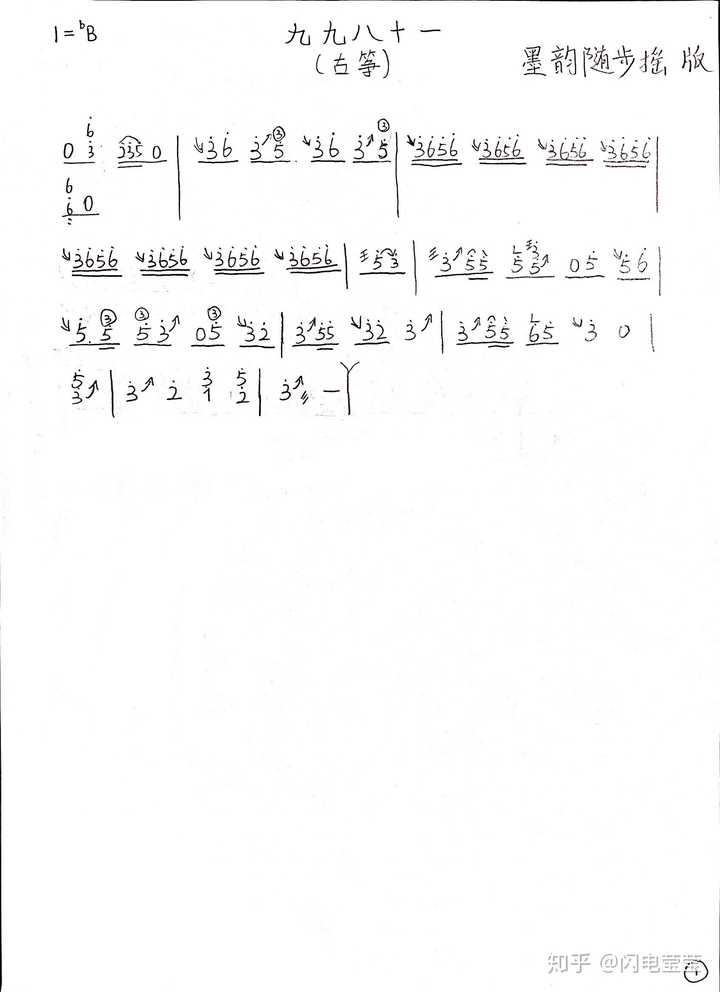 1=ᵇB 九九八十一
(古筝) 墨韵随步摇 版
6
0 3 3235 0 | 36 3 5 36 3 5 | 3656 3656 3656 3656 |
6
6 0
3656 3656 3656 3656 | 53 | 3 55 55 05 56 |
5. 5 53 05 32 | 3 55 32 3 | 3 55 65 3 0 |
5 3 5
3 | 3 2 1 2 | 3 —
知乎 @闪电莹莹
1